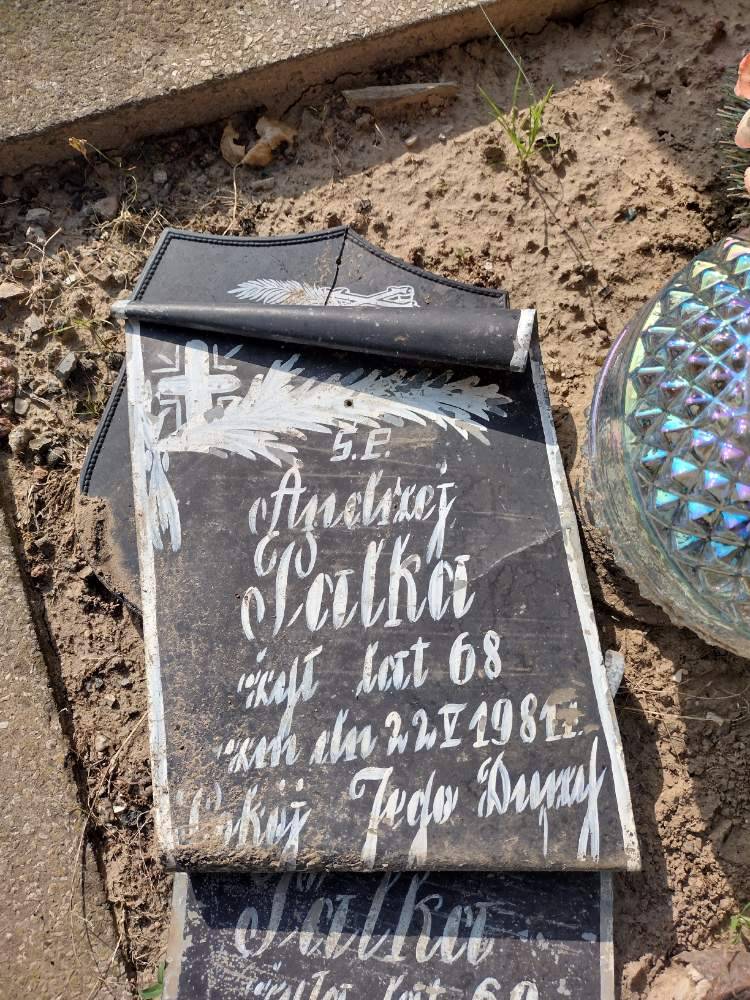 Ś.P.
Andrzej
Palka
żył lat 68
zm dn 22 V 1981 r.
Pokój Jego Duszy
Palka
żyła lat 60